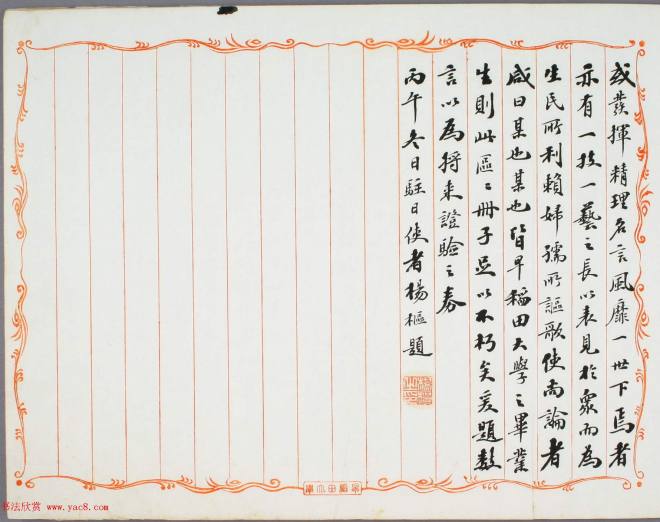 或發揮精理名言風靡一世下焉者
亦有一技一藝之長以表見於眾而為
生民所利賴婦孺所謳歌使尚論者
咸曰某也某也皆早稻田大學之畢業
生則此區々冊子足以不朽矣爰題數
言以為將來證驗之券
丙午冬日駐日使者楊樞題
早稻田大學
书法欣赏 www.yac8.com